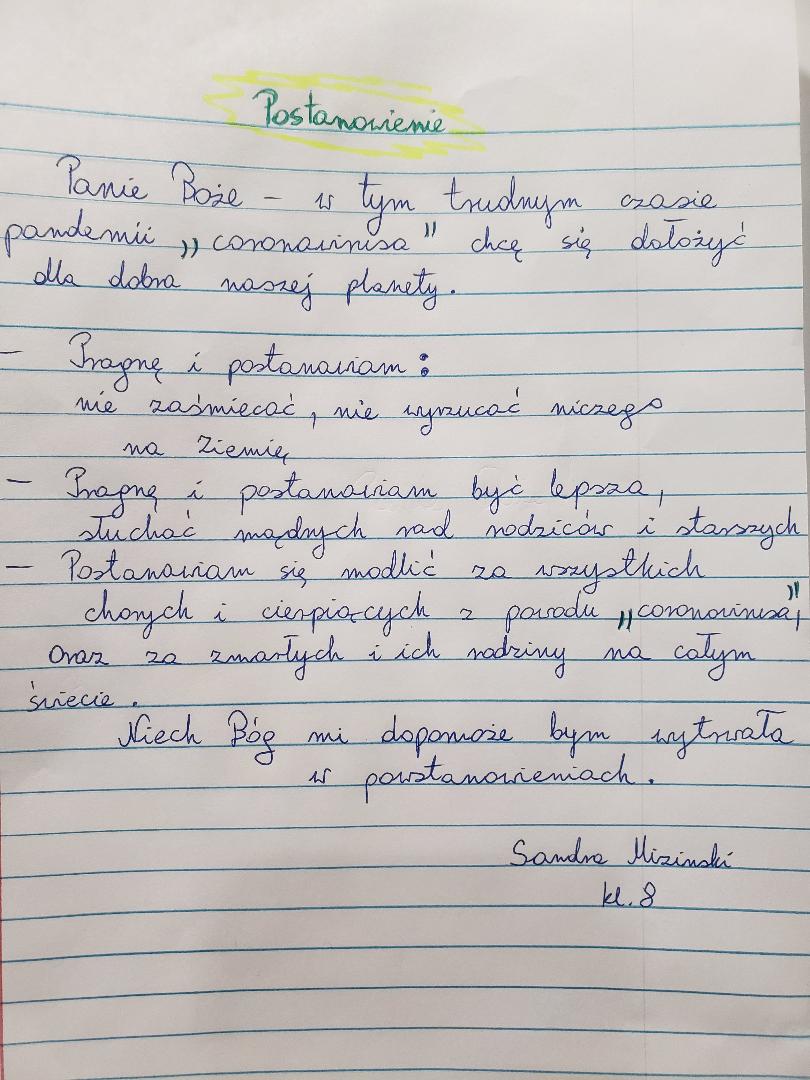 Postanowienie
Panie Boże – w tym trudnym czasie
pandemii „coronawirusa" chcę się dołożyć
dla dobra naszej planety.
– Pragnę i postanawiam:
nie zaśmiecać, nie wyrzucać niczego
na Ziemię
– Pragnę i postanawiam być lepsza,
słuchać mądrych rad rodziców i starszych
– Postanawiam się modlić za wszystkich
chorych i cierpiących z powodu „coronovirusa",
oraz za zmarłych i ich rodziny na całym
świecie.
Niech Bóg mi dopomoże bym wytrwała
w powstanowieniach.
Sandra Mizinski
kl. 8